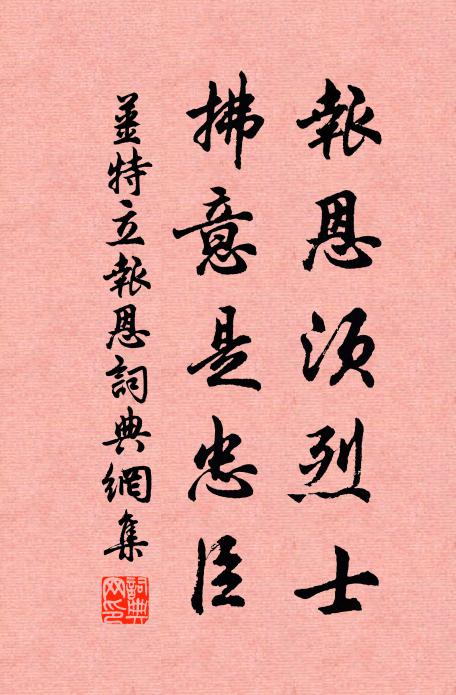 報恩須烈士
拂意是忠臣
姜特立報恩詞典網集
詞典網印